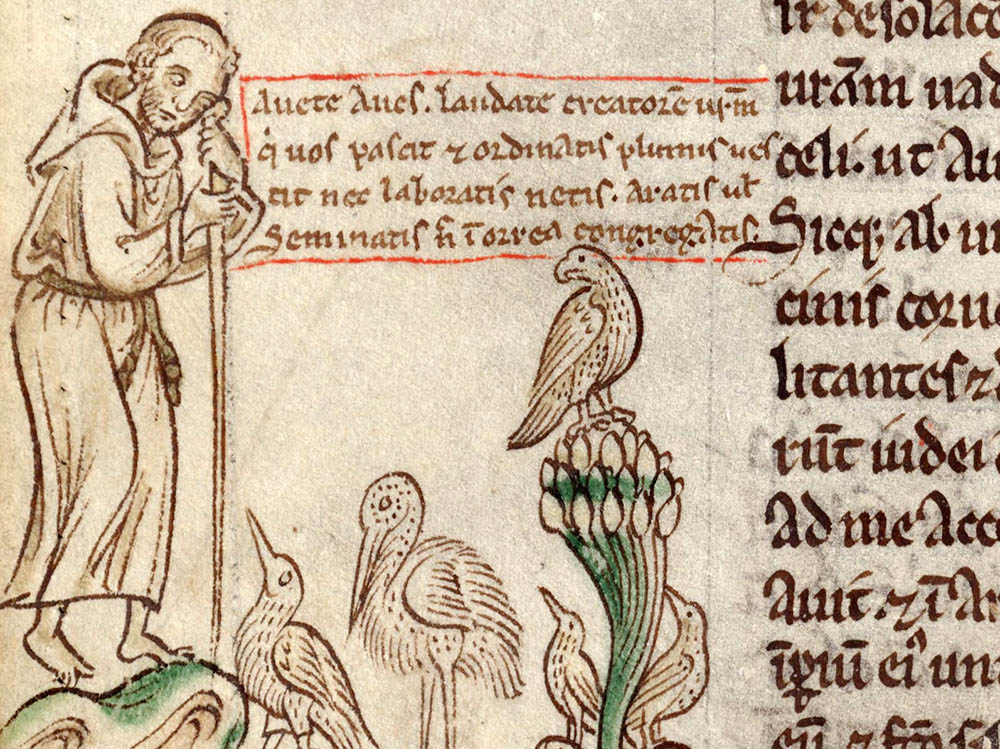 Auete Aues. laudate creatorē ur̄m
q̇ uos pascit ⁊ ordinatis plumis ues
tit nec laboratis netis. Aratis ul̄
Seminatis n̄ ī orrea congregatis.
ir desolaco
urām uad
celi. ut Au
Siccq; ab
cinis corue
litantes ⁊
rūt uidei
Ad me Acc
Auit. ⁊ ī
īꝑiū ei᷒ un